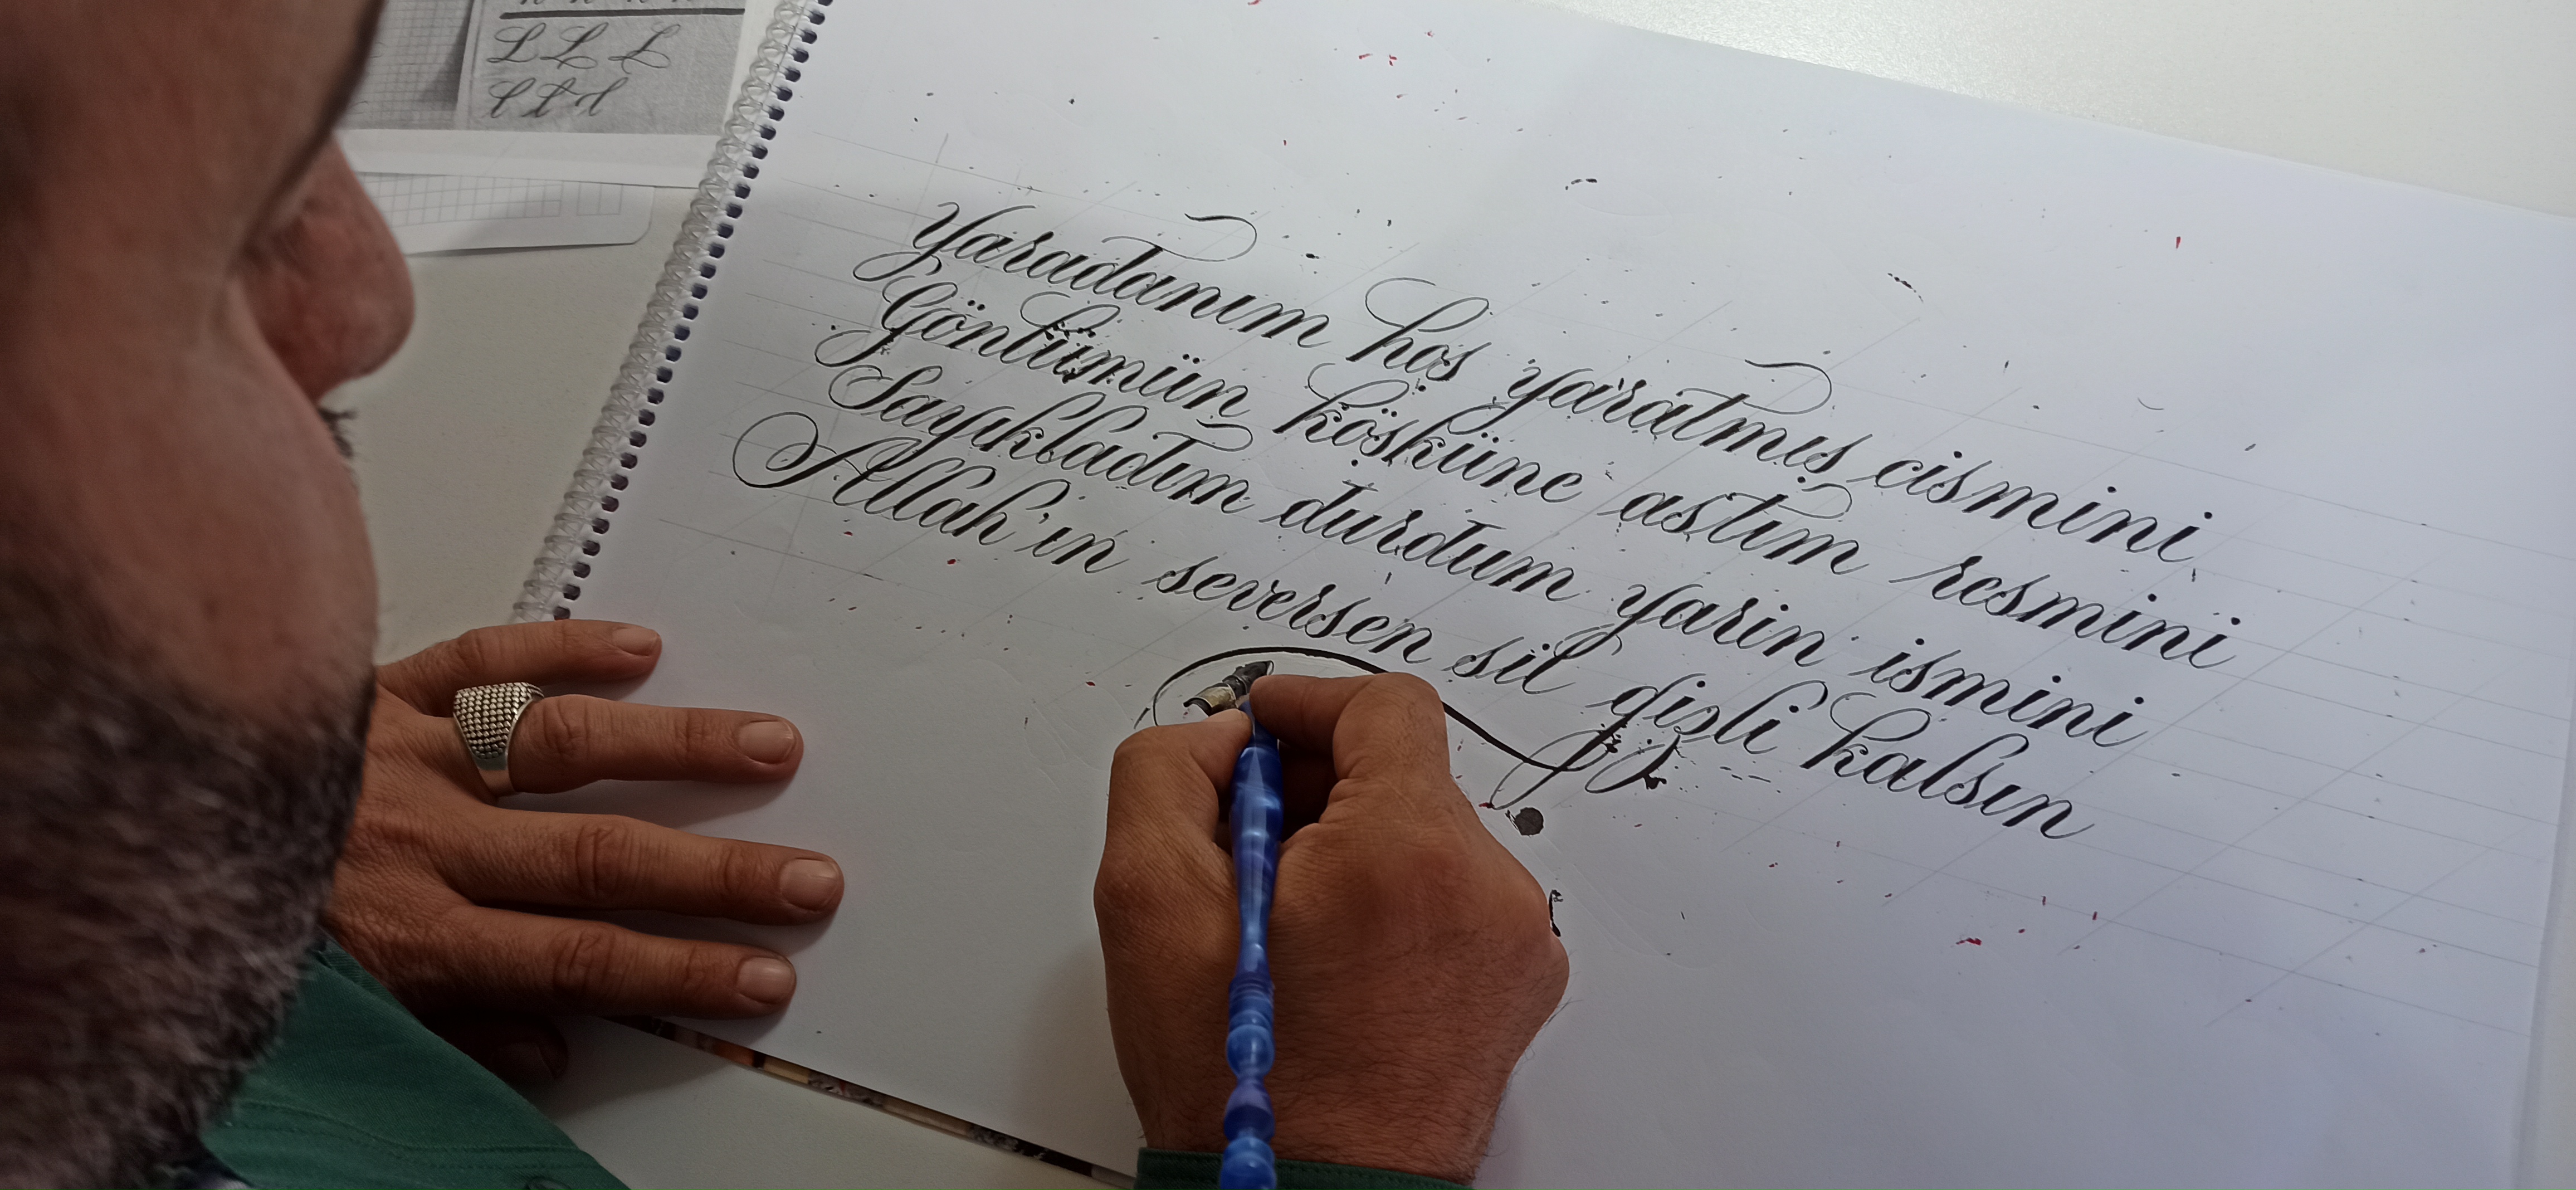 L L L
l t d
Yaradanım hoş yaratmış cismini
Gönlümün köşküne astım resmini
Sayıkladım durdum yarin ismini
Allah'ın seversen sil gizli kalsın